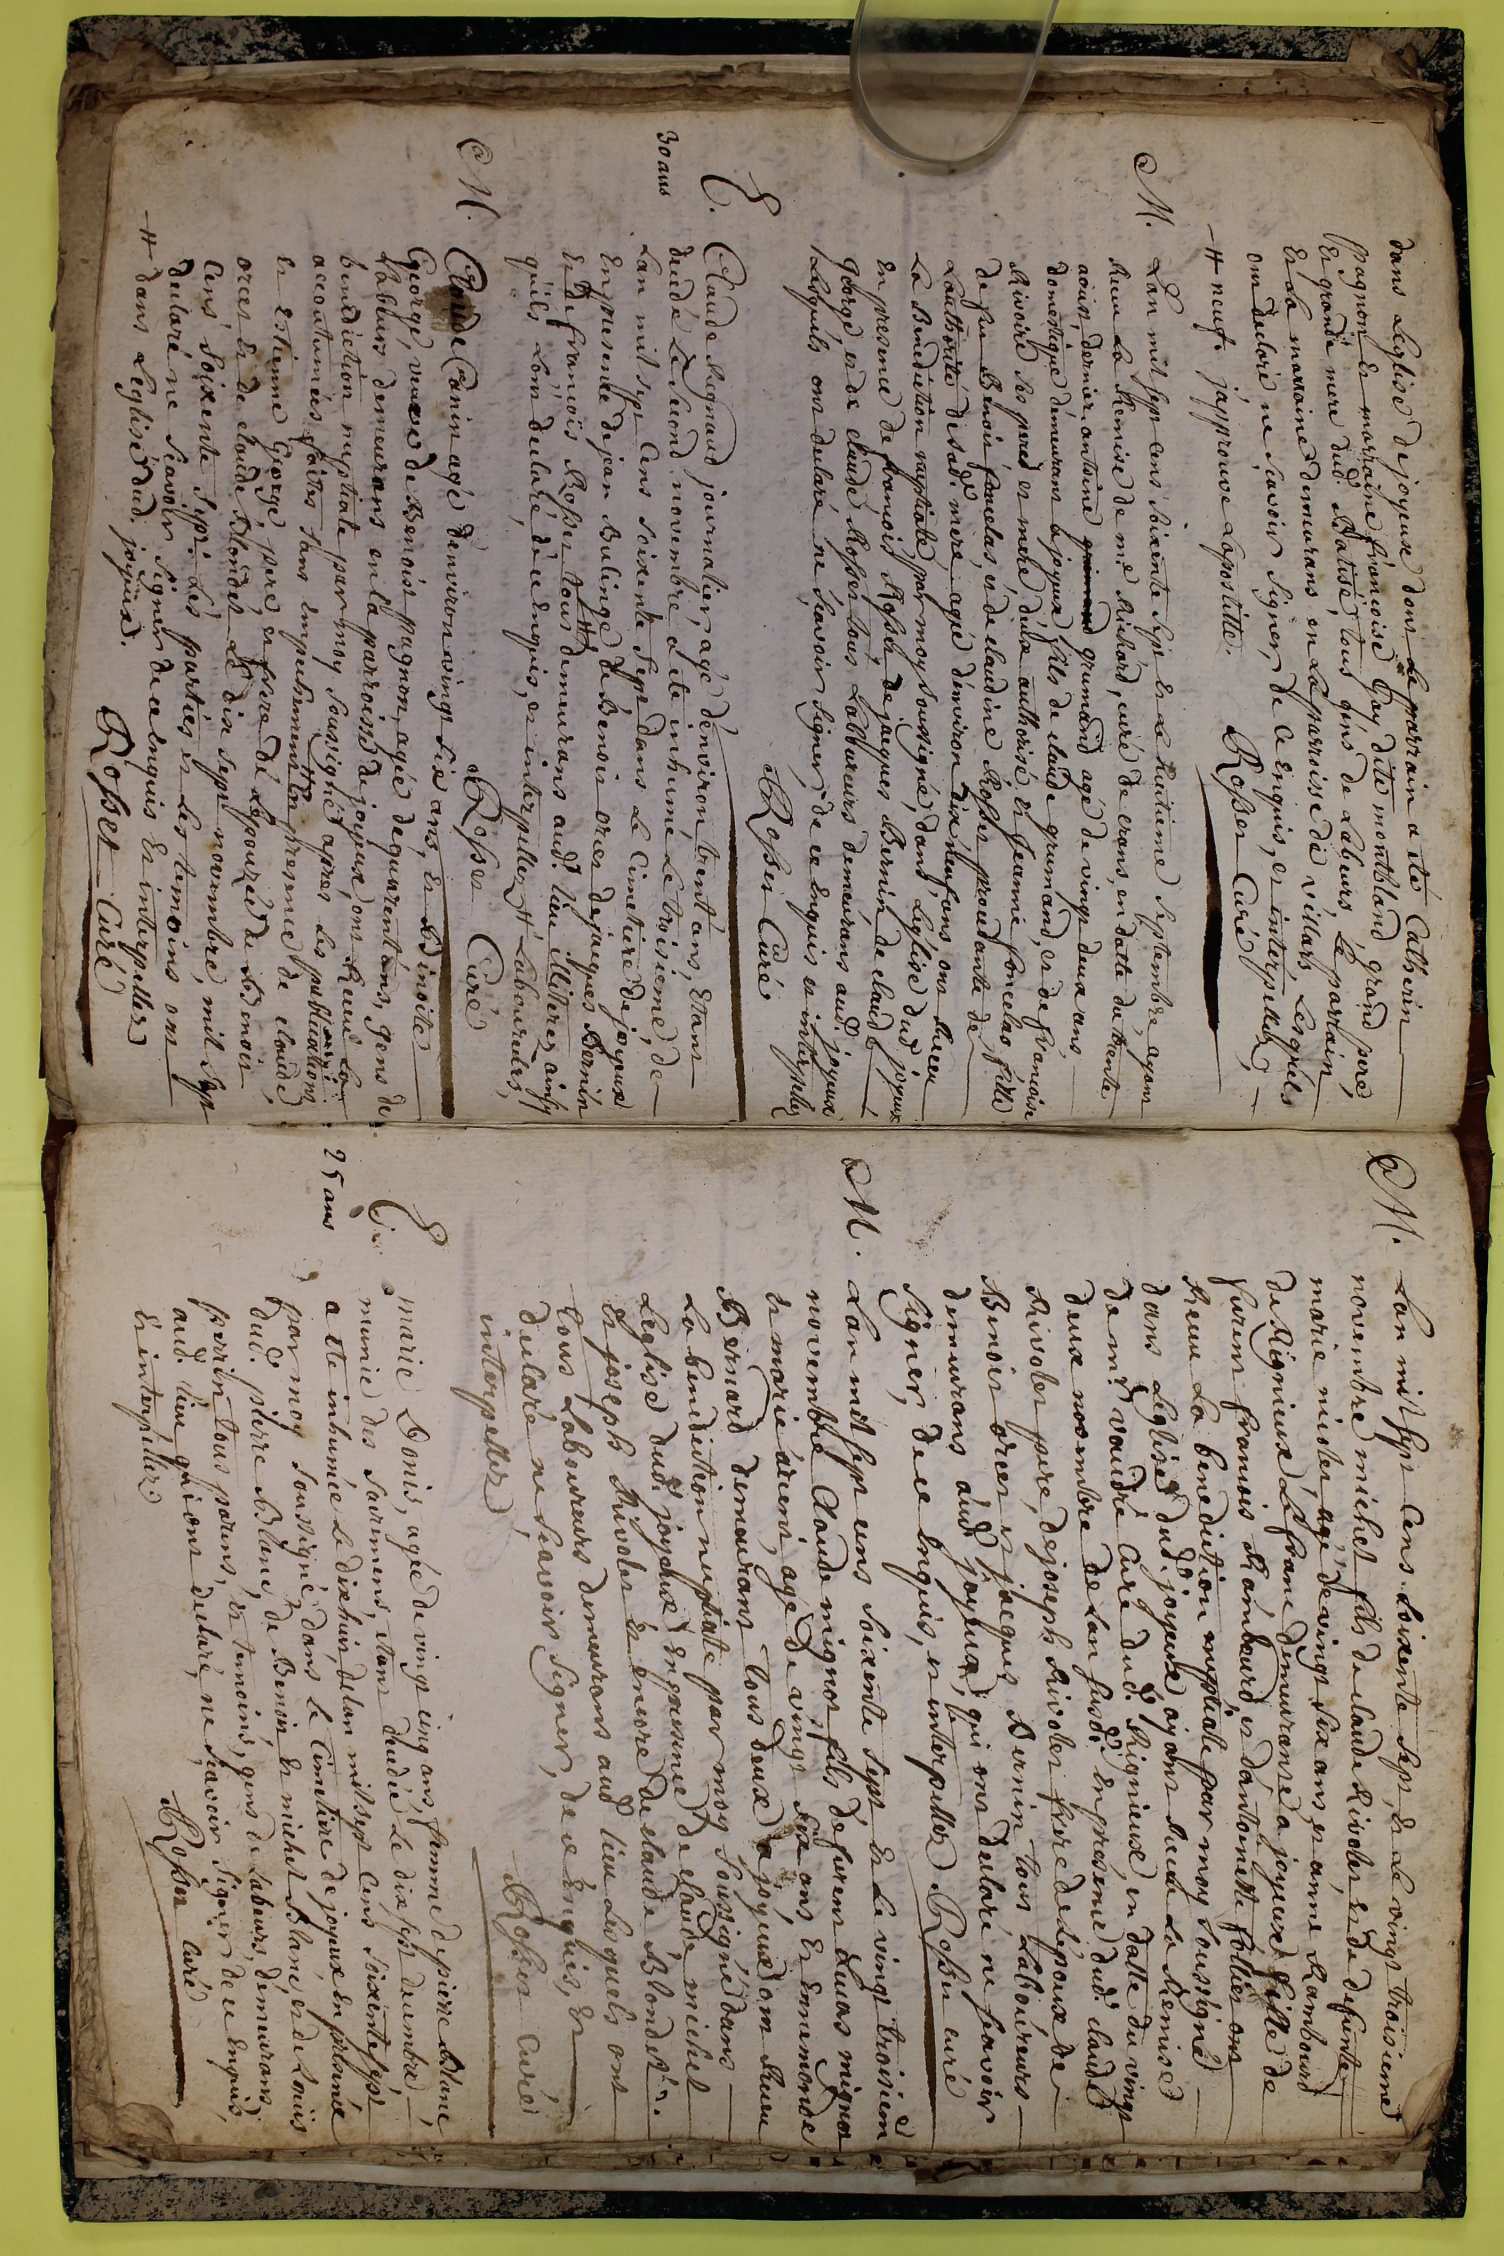 dans Leglise de joyeux dont Le parrain a ete Catherin
pugnon et marraine francoise Gay dite montbland grand pere
Et grande mere dud. Batisé, tous gens de Labeurs, Le parrain,
Et La marraine demeurans en La parroisse de villars, Lesquels
ont declaré ne scavoir signer, de ce Enquis, et interpellez,
# neuf. japprouve Lapostille. Rosset Curé
M. Lan mil sept cens soixente sept et Le huitieme septembre, ayant
Receu La Remise de mr. Richard, curé de crans, en datte du trente
aoust dernier antoine grumand agé de vingt deux ans
domestique demeurant a joyeux fils de claude grumand, et de francoise
Rivoire ses pere et mere, d'eux authorisé, et jeanne poncelas fille
de feu Benoit poncelas et de claudine Rosset, procedante de
Lauthorite de sad. mere, agé denviron dix neuf ans ont Receu
La Benediction nuptiale par moy soussigné, dans Leglise dud. joyeux
en presence de francois Rosset, de jacques Bernin de claude
george, et de claude Rosset tous Laboureurs demeurans aud. joyeux
Lesquels ont declaré ne scavoir signer, de ce Enquis et interpellez
Rosset Curé
E. Claude Regnaud journalier, agé denviron trent ans, Etant
30 ans
decedé Le second novembre a ete inhumé Le troisieme, de
Lan mil sept Cens soixente sept dans Le Cimetiere de joyeux
En presence de jan Bulinge de Benoit orcet de jacques Bernin
Et de francois Rosset tous demeurans aud. lieu illiterez ainsy
quils Lont declaré, de ce enquis, et interpellez # Laboureurs,
Rosset Curé
M. Claude Canin agé denviron vingt six ans, et Benoite
George, veuve de Benoit pugnon, agée de quarent ans, gens de
Labeurs demeurans en La parroisse de joyeux, ont Receu La
benediction nuptiale par moy soussigné apres Les publications
accoutumées faittes sans empechement # En presence de claude,
et Estienne George, pere, et frere de Lepouzée de Benoit
orcet et de claude Blondet Le dix sept novembre, mil sept
Cens, soixente sept. Les parties et Les temoins ont
declaré ne scavoir signer de ce enquis et interpellez
# dans Leglise dud. joyeux. Rosset Curé
M. Lan mil sept Cens soixente sept, et Le vingt troisieme
novembre michel fils de claude Rivolet et de defunte
marie nicolet, agé de vingt six ans, et anne Rambourd
de Rignieux Le franc demeurante a joyeux fille de
furent francois Rambourd, et dantoinette follier ont
Receu La benediction nuptiale par moy soussigné
dans Leglise dud. joyeux, ayant Receu La Remise
de mr. vaudré Curé dud. Rignieux, en datte du vingt
deux novembre de Lan susd. En presence dud. claude
Rivolet pere, de joseph Rivolet frere de Lépoux de
Benoit orcet et jacques Bernin tous Laboureurs
demeurans aud. joyeux, qui ont declaré ne scavoir
signer, de ce Enquis, et interpellez Rosset curé
M. Lan mil sept cens soixente sept et Le vingt troisieme
novembre Claude mignot fils de furent Lucas mignot
et marie arcent, agé de vingt six ans et Ennemonde
Bernard demeurans tous deux a joyeux ont Receu
La benediction nuptiale par moy soussigné, dans
Leglise dud. joyeux En presence de claude, michel
Et joseph Rivolet et encore de claude Blondet
tous Laboureurs demeurans aud. lieu Lesquels ont
declaré ne scavoir signer, de ce Enquis, et
interpellez Rosset Curé
E. marie Donis, agé de vingt cinq ans, femme de piere Blanc
25 ans
munie des sacremens, etant decedée Le dix sept decembre,
a ete inhumée Le dix huit, de Lan mil sept Cens soixente sept
par moy soussigné, dans Le Cimetiere de joyeux En presence
dud. pierre Blanc, de Benoit et michel Blanc, et de Loüis
perrin tous parens, et temoins, gens de Labeurs, demeurans
aud. lieu qui ont declaré, ne scavoir signer de ce Enquis,
Et interpellez. Rosset curé